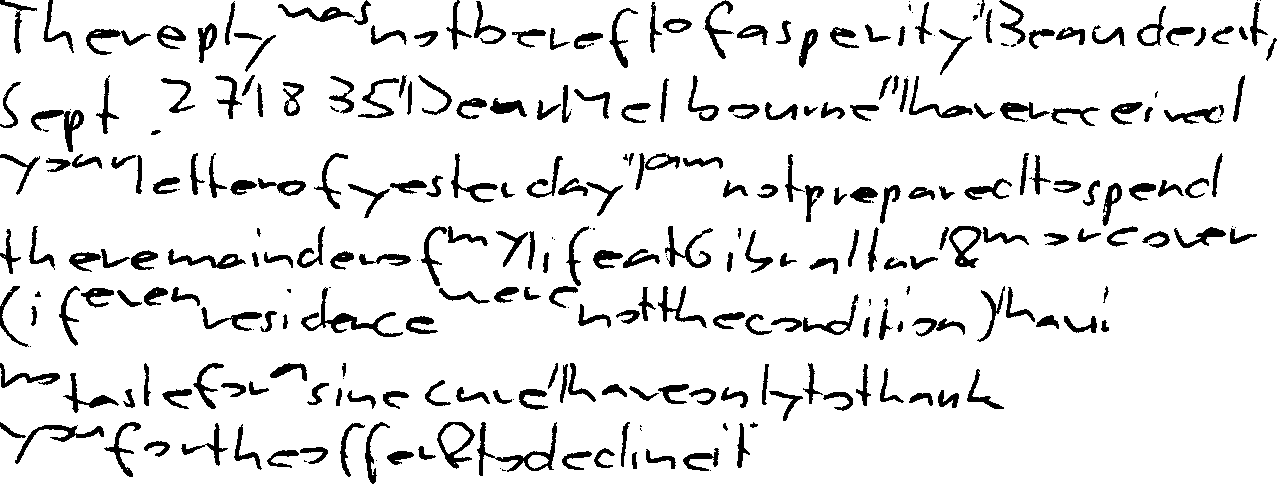 The reply was not bereft of asperity "Beaudesert,
Sept. 27 1835 "Dear Melbourne "I have received
your letter of yesterday "I am not prepared to spend
the remainder of my life at Gibraltar & moreover
(if even residence were not the condition) I have
no taste for a sinecure I have only to thank
you for the offer & to decline it